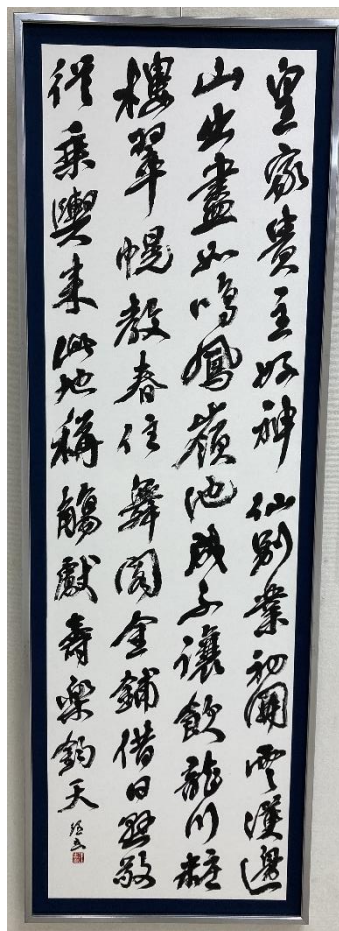 皇家貴主好神仙別業初開雲漢邊
山出盡如鳴鳳嶺池成不讓飲龍川粧
樓翠幌教春住舞閣金鋪借日懸敬
從乗輿来此地稱觴獻壽樂鈞天